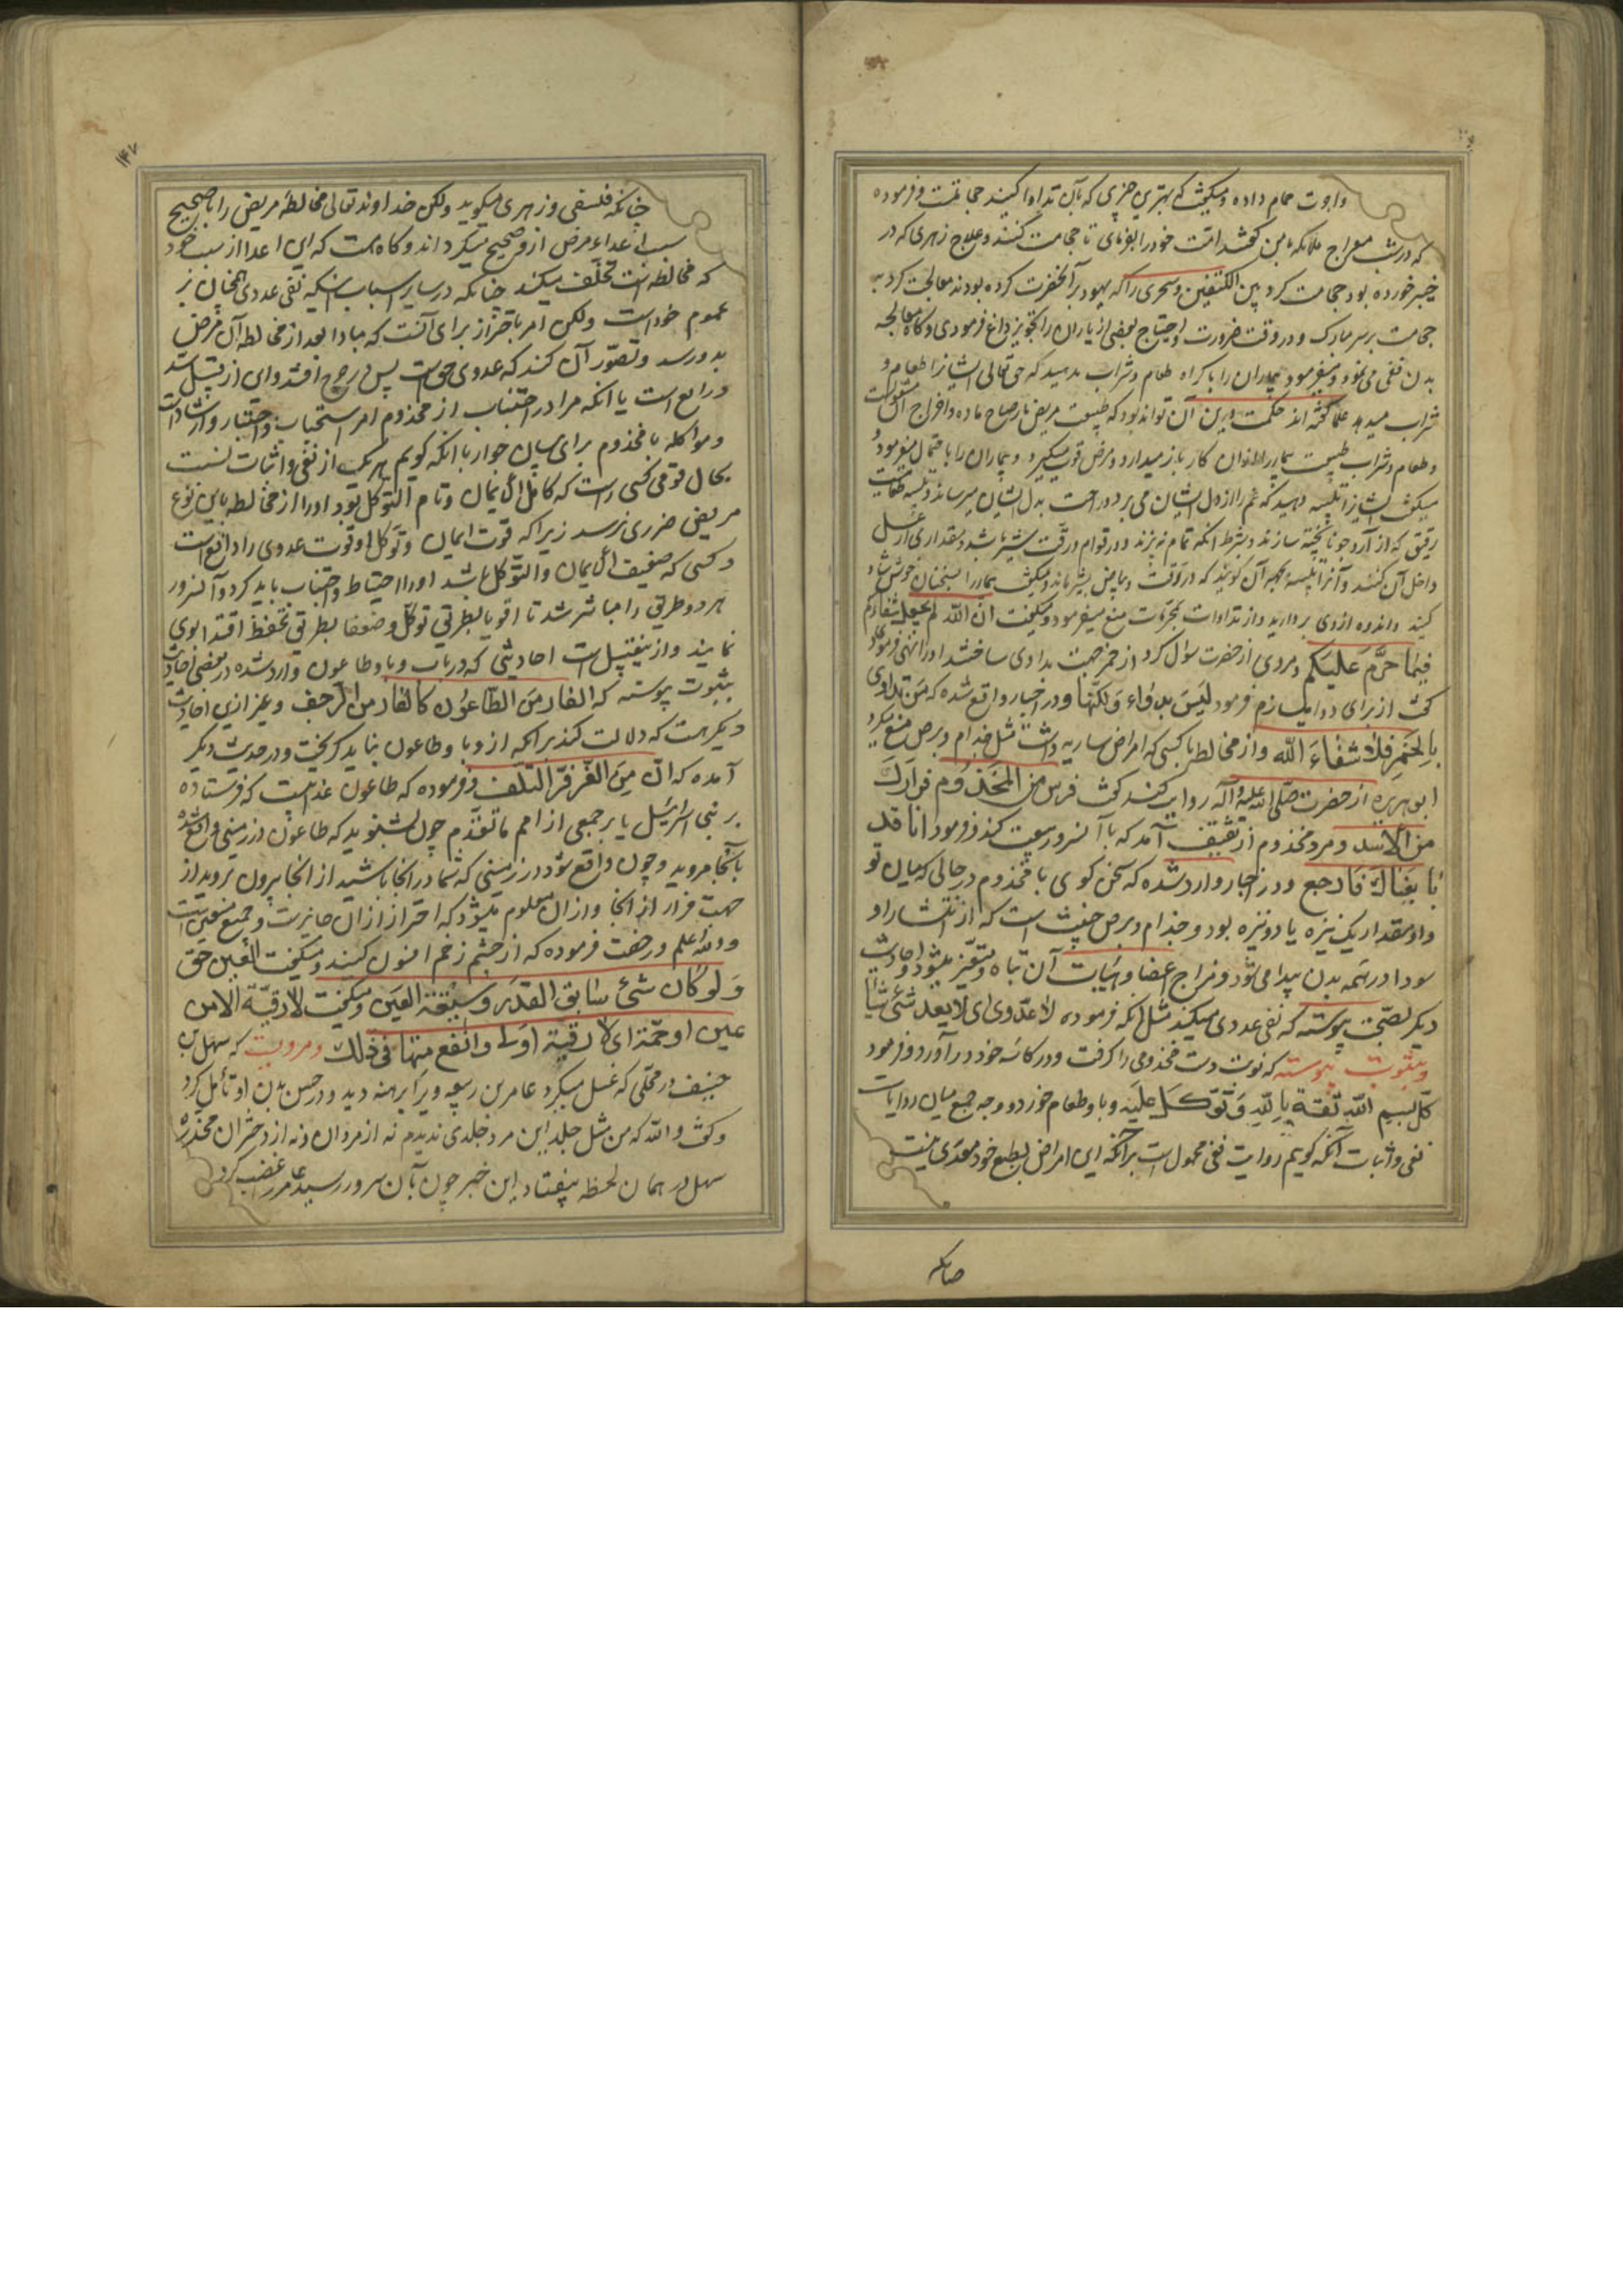 واجرت حمام داده و میگفت که بهترین چیزی که بآن تداوا کنید حجامتست و فرموده
که در شب معراج ملائکه با من گفتند امت خود را بفرمای تا حجامت کنند و علاج زهری که در
خیبر خورده بود حجامت کرد بین الکتفین و سحری را که یهود بر آنحضرت کرده بودند معالجت کرد به
حجامت بر سر مبارک و در وقت ضرورت و احتیاج بعضی از یاران را تجویز داغ فرمودی و گاه معالجه
بدن فقی می نمود و میفرمود بیماران را باکراه طعام و شراب مدهید که حق تعالی ایشانرا طعام و
شراب میدهد علما گفته اند حکمت درین آن تواند بود که طبیعت مریض باصلاح ماده و اخراج آن مشغولست
و طعام و شراب طبیعت بیمار را از آن کار باز میدارد و مرض قوت میگیرد و بیماران را
میگفت ایشانرا تلبینه دهید که غم را از دل ایشان می برد و راحت بدل ایشان میرساند و تلبینه
رقیق که از آرد جو نا پخته سازند و بشرط آنکه تمام نپزند و در قوام و رقت بشیر باشد و مقداری از عسل
داخل آن کنند و آنرا تلبینه بجهه آن گویند که در رقت و بیاض بشیر ماند و میگفت بیمار را بسخنان خوش شاد
کنید و اندوه از وی بردارید و از تداوات بمحرمات منع میفرمود و میگفت ان الله لم یجعل شفاءکم
فیما حرم علیکم و مردی از حضرت سؤال کرد از خمر جهت مداوی ساختند او را نهی فرمود
گفت از برای دوا میسازم فرمود لیس بدواء ولکنها و در اخبار واقع شده که من تداوی
بالخمر فلا شفاء الله و از مخالطه با کسی که امراض ساریه داشت مثل جذام و برص منع میکرد
ابو هریره از حضرت صلی الله علیه و آله روایت کند که گفت فر من المجذوم فرارک
من الاسد و مرد مجذوم از ثقیف آمد که با آنسرور بیعت کند فرمود انا قد
بایعناک فارجع و در اخبار وارد شده که سخن گوی با مجذوم در حالی که میان تو
و او مقدار یک نیزه یا دو نیزه بود و جذام و برص است که از انتشار او
سودا در همه بدن پیدا می شود و مزاج اعضا و هیئات آن تباه و متغیر میشود و احادیث
دیگر بصحت پیوسته که نفی عدوی میکند مثل آنکه فرموده لا عدوی ای لا یعدی شئ شیئا
و بثبوت پیوسته که نوبت دست مجذومی را گرفت و در کاسه خود در آورد و فرمود
کل بسم الله ثقة بالله و توکل علیه و با او طعام خورد و وجه جمع میان روایات
نفی و اثبات آنکه گوییم روایت نفی محمول است بر آنکه این امراض بطبع خود معدی نیست
چنانکه
۱۴۷
چنانکه فلسفی و زهری میگوید ولکن خداوند تعالی مخالطه مریض را با صحیح
سبب اعداء مرض از و صحیح میگرداند و گاه هست که این اعدا از سبب خود
که مخالطه است تخلف میکند چنانکه در سایر اسباب آنکه نفی عدوی بر
عموم خود است ولکن امر باحتراز برای آنست که مبادا بعد از مخالطه آن مرض
بدو رسد و تصور آن کند که عدوی حق است پس در حرج افتد و این از قبیل سد
ذرایع است یا آنکه مراد از اجتناب از مجذوم امر استحباب و اختیار و ارشاد است
و مواکله با مجذوم برای بیان جواز یا آنکه گوییم هر یک از نفی و اثبات نسبت
بحال قومی کسی راست که کامل الایمان و تام التوکل بود او را از مخالطه باین نوع
مریض ضرری نرسد زیرا که قوت ایمان و توکل او قوت عدوی را دافع است
و کسی که ضعیف الایمان و التوکل باشد او را احتیاط و اجتناب باید کرد و آنسرور
هر دو طریق را مباشر شد تا اقویا بطریق توکل و ضعفا بطریق تحفظ اقتدا بوی
نمایند و از ینقبیل است احادیثی که در باب وبا و طاعون وارد شده در بعضی احادیث
بثبوت پیوسته که الفار من الطاعون کالفار من الزحف و بغیر ازین احادیث
دیگر هست که دلالت کند بر آنکه از وبا و طاعون نباید گریخت و در حدیث دیگر
آمده که ان من الفر فر التلف و فرموده که طاعون عذابیست که فرستاده
بر بنی اسرائیل یا بر جمعی از امم ما تقدم چون بشنوید که طاعون در زمینی واقع شده
بآنجا مروید و چون واقع شود در زمینی که شما در آنجا باشید از آنجا بیرون نروید از
جهت فرار از آنجا و از آن معلوم میشود که احتراز از آن جایزست و جمع
والله اعلم و رخصت فرموده که از چشم زخم افسون کنند و میگفت العین حق
ولو کان شئ سابق القدر و سبقته العین و میگفت لا رقیة الا من
عین او حمة ای لا رقیة اولی و انفع منها فی ذلک و مرویست که سهل بن
حنیف در محلی که غسل میکرد عامر بن ربیعه ویرا برهنه دید و در حسن بدن او تأمل کرد
و گفت والله که من مثل جلد این مرد جلدی ندیدم نه از مردان و نه از دختران مخدره
سهل در همان لحظه بیفتاد این خبر چون بآن سرور رسید بر عامر غضب کرد